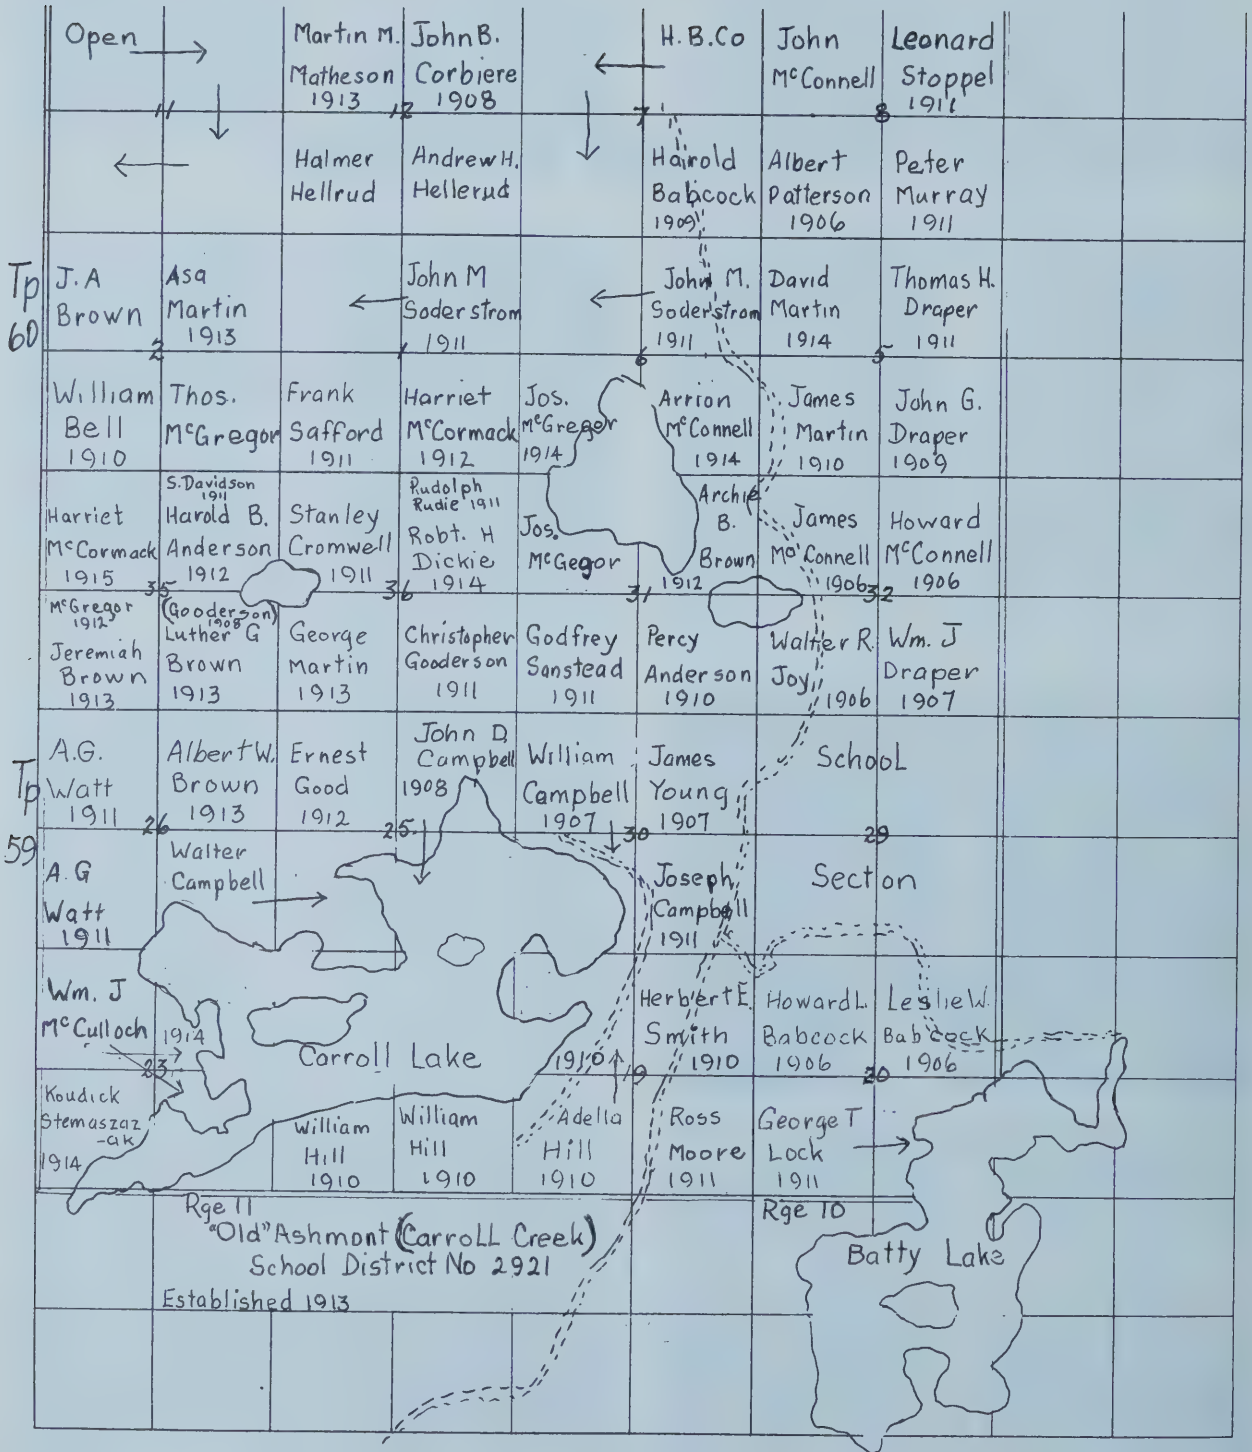 Open
Martin M.
Matheson
1913
John B.
Corbiere
1908
H.B.Co
John
McConnell
Leonard
Stoppel
1911
11
12
7
8
Halmer
Hellrud
Andrew H.
Hellerud
Hairold
Babcock
1909
Albert
Patterson
1906
Peter
Murray
1911
Tp
60
J. A
Brown
Asa
Martin
1913
John M
Soderstrom
1911
John M.
Soderstrom
1911
David
Martin
1914
Thomas H.
Draper
1911
2
1
6
5
William
Bell
1910
Thos.
McGregor
Frank
Safford
1911
Harriet
McCormack
1912
Jos.
McGregor
1914
Arrion
McConnell
1914
James
Martin
1910
John G.
Draper
1909
Harriet
McCormack
1915
S. Davidson
1911
Harold B.
Anderson
1912
Stanley
Cromwell
1911
Rudolph
Rudie 1911
Robt. H
Dickie
1914
Jos.
McGegor
Archie
B.
Brown
1912
James
McConnell
1906
Howard
McConnell
1906
35
36
31
32
McGregor
1912
Jeremiah
Brown
1913
(Gooderson)
1908
Luther G
Brown
1913
George
Martin
1913
Christopher
Gooderson
1911
Godfrey
Sanstead
1911
Percy
Anderson
1910
Walter R.
Joy
1906
Wm. J
Draper
1907
Tp
59
A.G.
Watt
1911
Albert W.
Brown
1913
Ernest
Good
1912
John D.
Campbell
1908
William
Campbell
1907
James
Young
1907
School
26
25
30
29
A.G
Watt
1911
Walter
Campbell
Joseph
Campbell
1911
Section
Wm. J
McCulloch
1914
Carroll Lake
1910
Herbert E.
Smith
1910
Howard L.
Babcock
1906
Leslie W.
Babcock
1906
23
19
20
Koudick
Stemaszaz
-ak
1914
William
Hill
1910
William
Hill
1910
Adella
Hill
1910
Ross
Moore
1911
George T
Lock
1911
Rge 11
Rge 10
"Old" Ashmont (Carroll Creek)
School District No 2921
Established 1913
Batty Lake